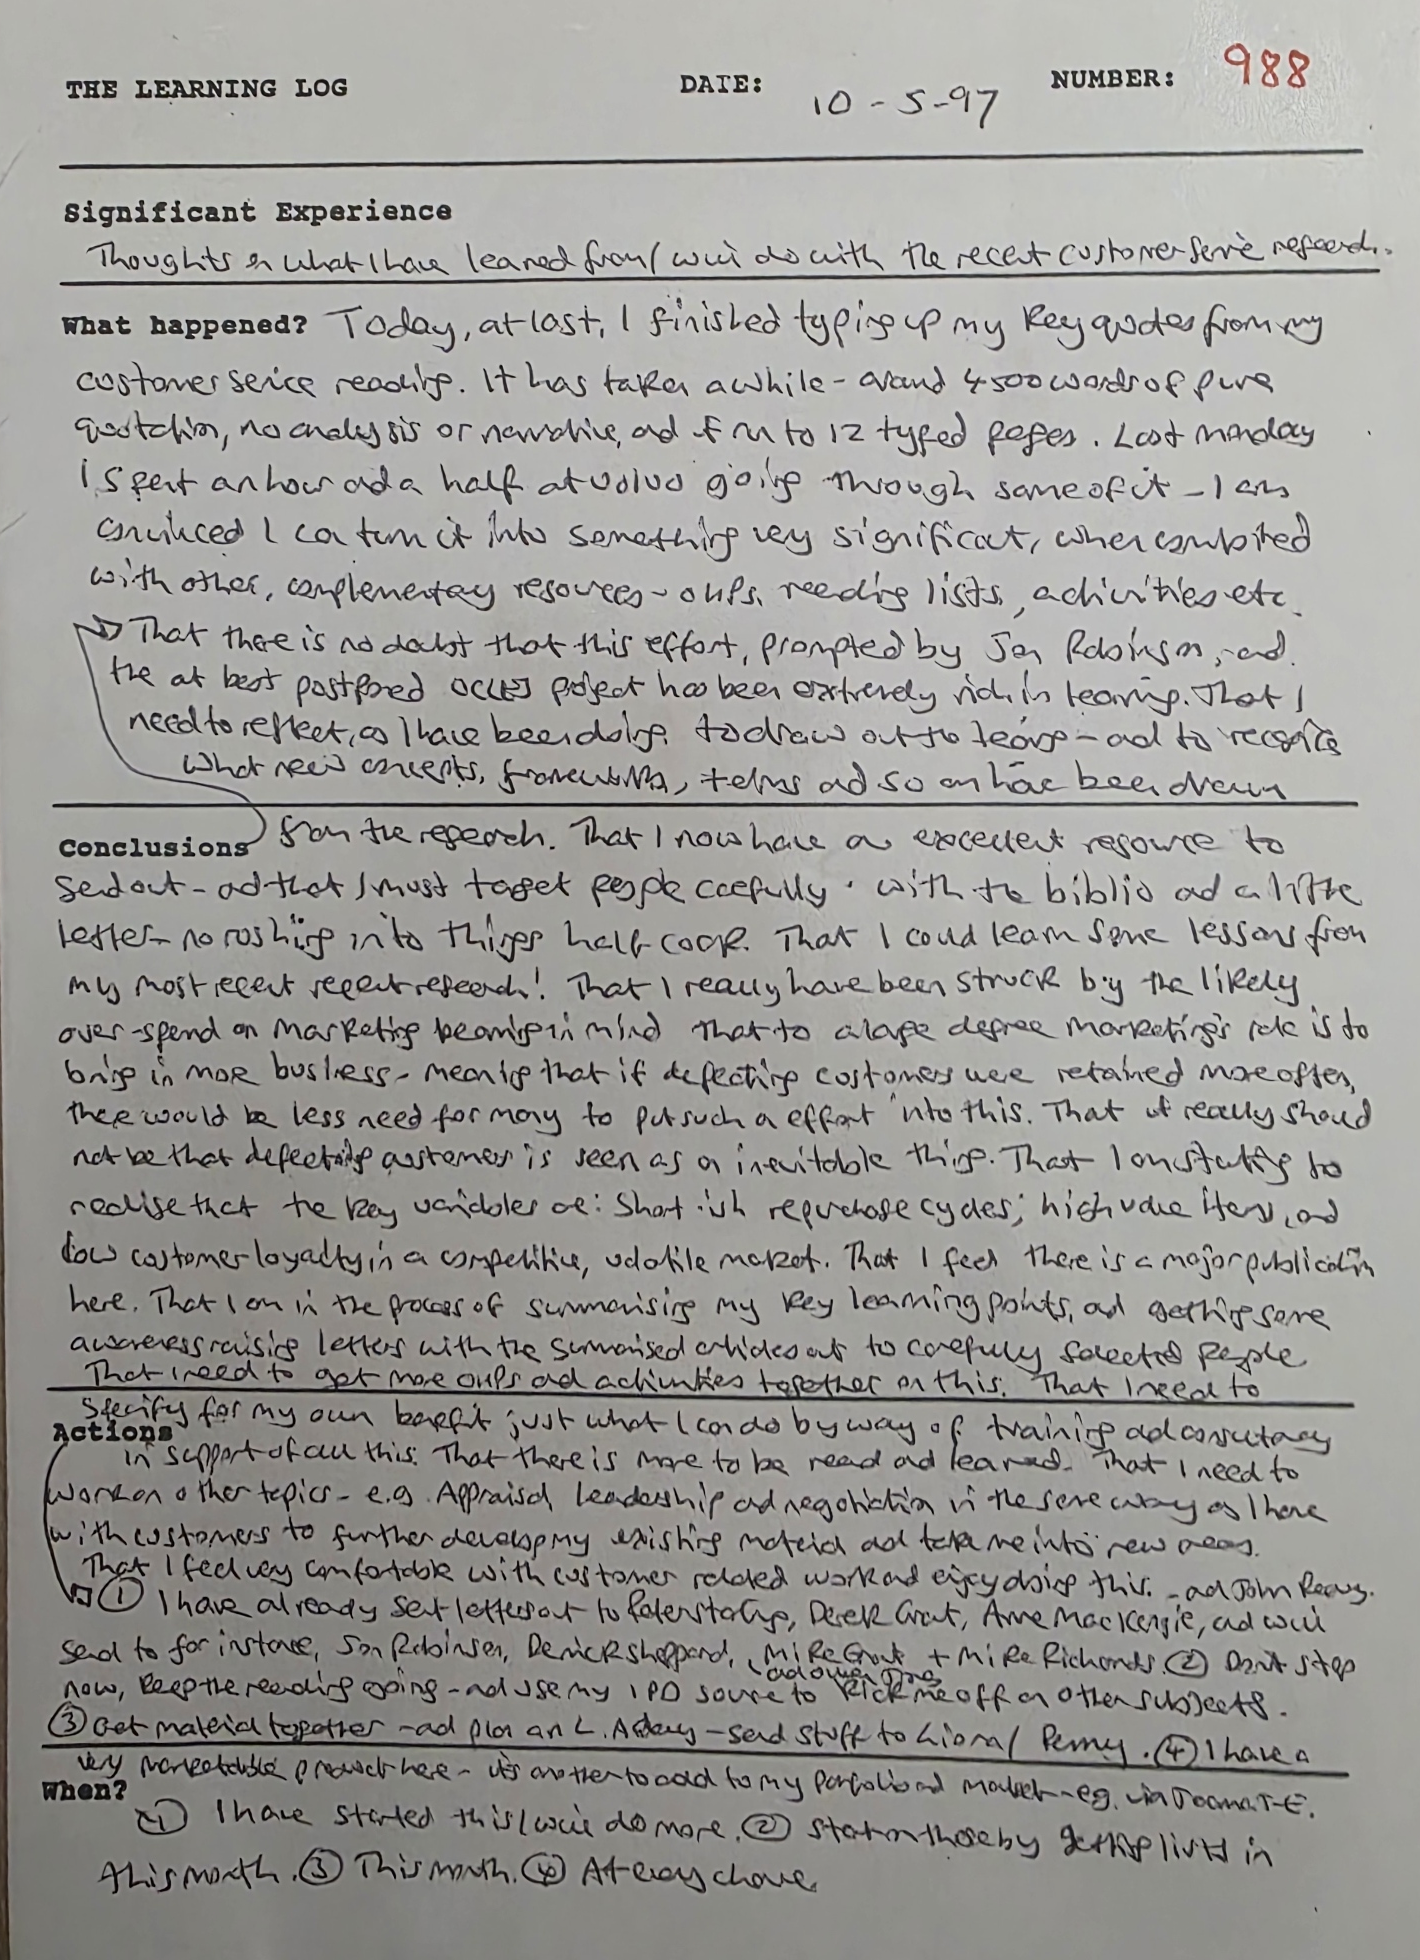 THE LEARNING LOG DATE: 10-5-97 NUMBER: 988
Significant Experience
Thoughts on what I have learned from/will do with the recent customer service research.
What happened? Today, at last, I finished typing up my key quotes from my
customer service reading. It has taken a while - around 4500 words of pure
quotation, no analysis or narrative, and it ran to 12 typed pages. Last Monday
I spent an hour and a half at Volvo going through some of it - I am
convinced I can turn it into something very significant, when combined
with other, complementary resources - OHPs, reading lists, activities etc.
That there is no doubt that this effort, prompted by Jon Robinson, and
the at best postponed project has been extremely rich in learning. That I
need to reflect, as I have been doing, to draw out the learning - and to recognise
what new concepts, frameworks, terms and so on have been drawn
Conclusions from the research. That I now have an excellent resource to
send out - and that I must target people carefully - with the biblio and a little
letter - no rushing into things half cock. That I could learn some lessons from
my most recent recent research! That I really have been struck by the likely
over-spend on marketing bearing in mind that to a large degree marketing's role is to
bring in more business - meaning that if defecting customers were retained more often,
there would be less need for many to put such an effort into this. That it really should
not be that defecting customers is seen as an inevitable thing. That I am starting to
realise that the key variables are: short-ish repurchase cycles; high value items, and
low customer loyalty in a competitive, volatile market. That I feel there is a major publication
here. That I am in the process of summarising my key learning points, and getting some
awareness raising letters with the summarised articles out to carefully selected people
That I need to get more OHPs and activities together on this. That I need to
specify for my own benefit just what I can do by way of training and consultancy
Actions in support of all this. That there is more to be read and learned. That I need to
work on other topics - e.g. Appraisal, leadership and negotiation in the same way as I have
with customers to further develop my existing material and take me into new areas.
That I feel very comfortable with customer related work and enjoy doing this. - and John Reavy.
① I have already sent letters out to Peter, Derek Grant, Anne MacKenzie, and will
send to for instance, Jon Robinson, Derrick Sheppard, Mike Grout + Mike Richards. ② Don't stop
now, keep the reading going - and use my IPD source to kick me off on other subjects.
③ Get material together - and plan an L. A day - send stuff to Liona/Penny. ④ I have a
very marketable product here - it's another to add to my portfolio and market - eg. via
When?
① I have started this/will do more. ② Start on these by getting lists in
this month. ③ This month. ④ At every chance.